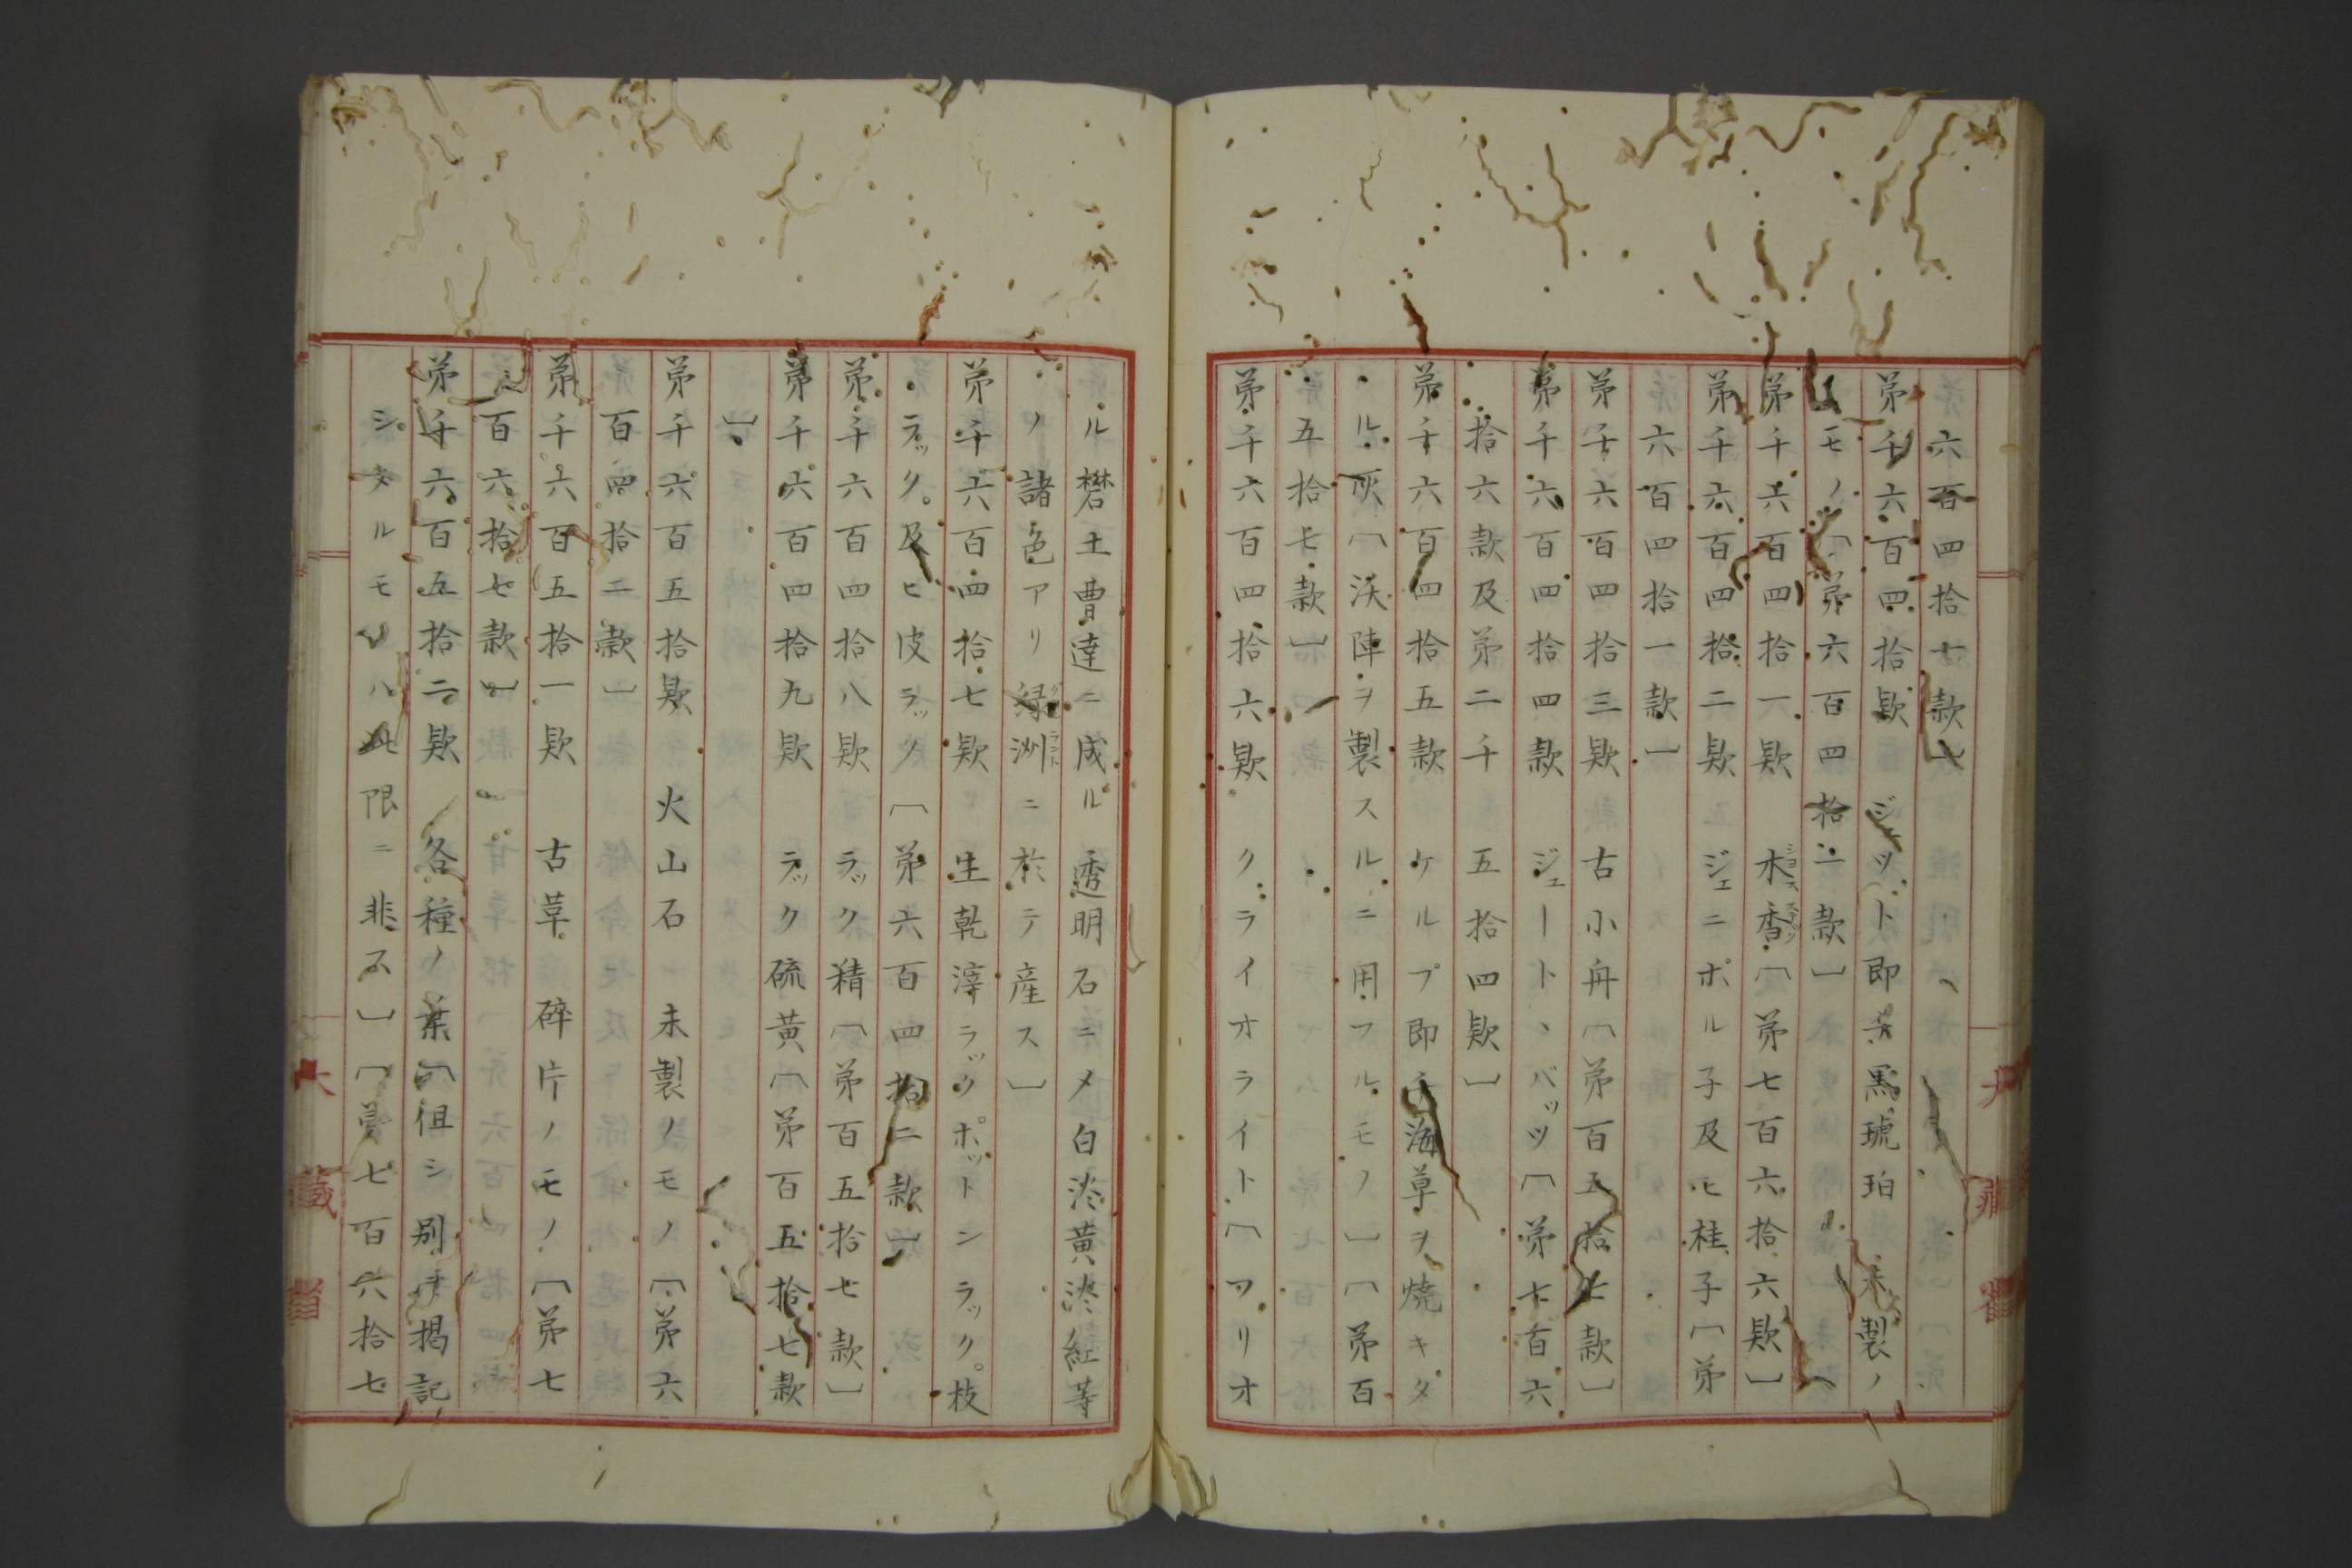 六百四拾七款〕
第千六百四拾欵　ジェット即チ黒琥珀　未製ノ
モノ〔第六百四拾二款〕
第千六百四拾一欵　木香〔第七百六拾六欵〕
第千六百四拾二欵　ジェニポル子及ヒ桂子〔第
六百四拾一款〕
第千六百四拾三欵　古小舟〔第百五拾七款〕
第千六百四拾四款　ジュート、バッツ〔第七百六
拾六款及第二千五拾四欵〕
第千六百四拾五款　ケルプ即チ海草ヲ焼キタ
ル灰〔沃陣ヲ製スルニ用フルモノ〕〔第百
五拾七款〕
第千六百四拾六欵　クライオライト〔フリオ
ル礬土曹達ニ成ル透明石ニメ白淡黄淡紅等
ノ諸色アリ緑洲ニ於テ産ス〕
第千六百四拾七欵　生乾滓ラックボットンラック。枝
ラック。及ヒ皮ラック〔第六百四拾二款〕
第千六百四拾八欵　ラック精〔第百五拾七款〕
第千六百四拾九欵　ラック硫黄〔第百五拾七款
〕
第千六百五拾欵　火山石　未製ノモノ〔第六
百四拾二款〕
第千六百五拾一欵　古草　碎片ノモノ〔第七
百六拾七款〕
第千六百五拾二欵　各種ノ葉〔但シ別ニ掲記
シタルモノハ此限ニ非ス〕〔第七百六拾七
大藏省
大藏省